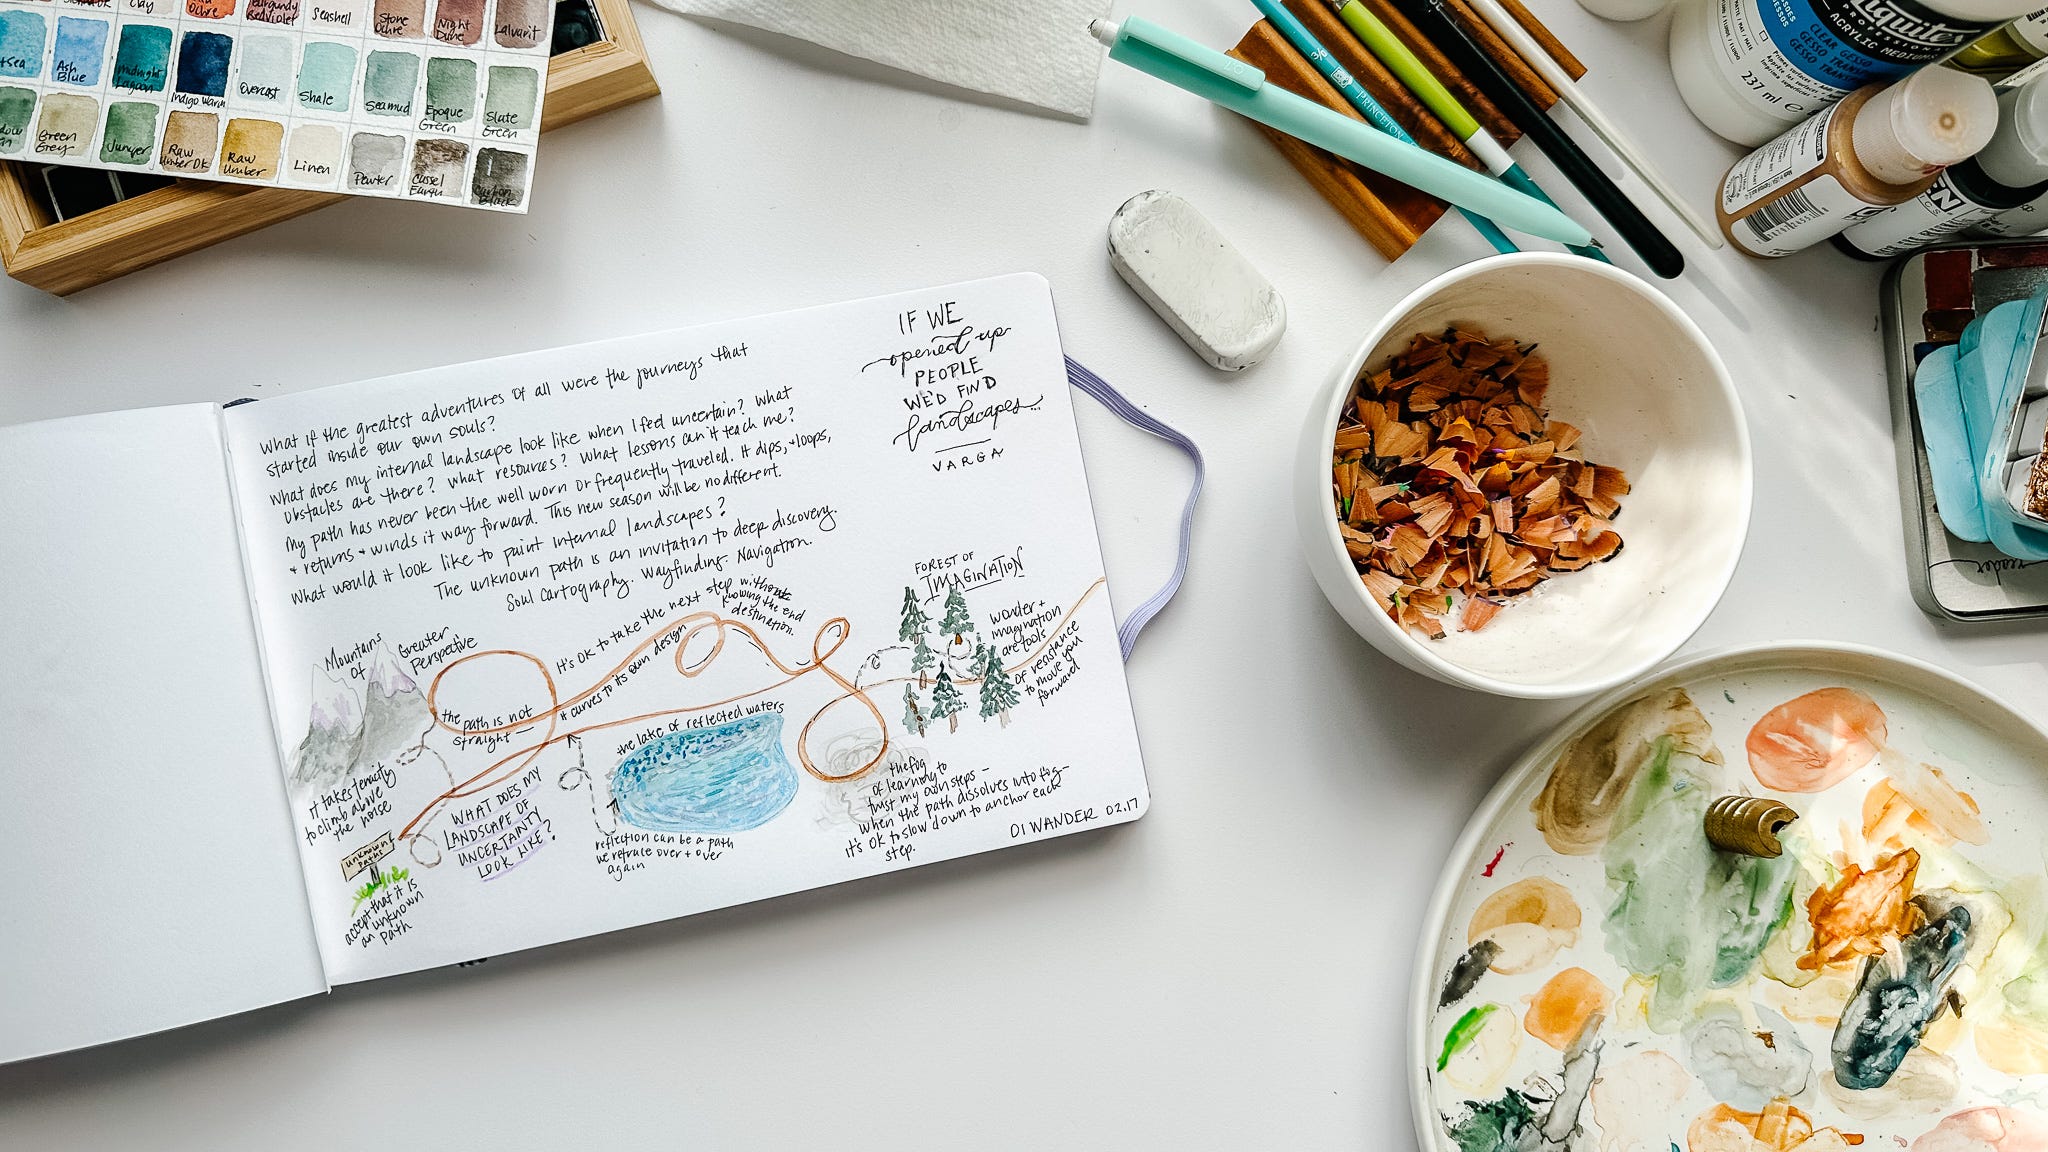 Clay
Ochre
Burgundy
Red Violet
Seashell
Stone
Ochre
Night
Dune
Lalvarit
Ash
Blue
Midnight
Lagoon
Indigo Warm
Overcast
Shale
Seamud
Epoque
Green
Slate
Green
Green
Grey
Juniper
Raw
Umber DK
Raw
Umber
Linen
Pewter
Cassel
Earth
Carbon
Black
What if the greatest adventures of all were the journeys that
started inside our own souls?
What does my internal landscape look like when I feel uncertain? What
obstacles are there? What resources? What lessons can it teach me?
My path has never been the well worn or frequently traveled. It dips, + loops,
+ returns + winds it way forward. This new season will be no different.
What would it look like to paint internal landscapes?
The unknown path is an invitation to deep discovery.
Soul Cartography. Wayfinding. Navigation.
IF WE
opened up
PEOPLE
WE'D FIND
landscapes...
VARGA
Mountains
of
Greater
Perspective
the path is not
straight —
It's ok to take the next step without
knowing the end
destination.
+ curves to its own design
FOREST OF
IMAGINATION
wonder +
imagination
are tools
of resistance
to move you
forward
the lake of reflected waters
reflection can be a path
we retrace over + over
again
the fog
of learning to
trust my own steps —
when the path dissolves into fog —
it's ok to slow down to anchor each
step.
it takes tenacity
to climb above
the noise
unknown
paths
accept that it is
an unknown
path
WHAT DOES MY
LANDSCAPE OF
UNCERTAINTY
LOOK LIKE?
01 WANDER 02.17
PRINCETON
Liquitex
PROFESSIONAL
ACRYLIC MEDIUMS
CLEAR GESSO
237 ml